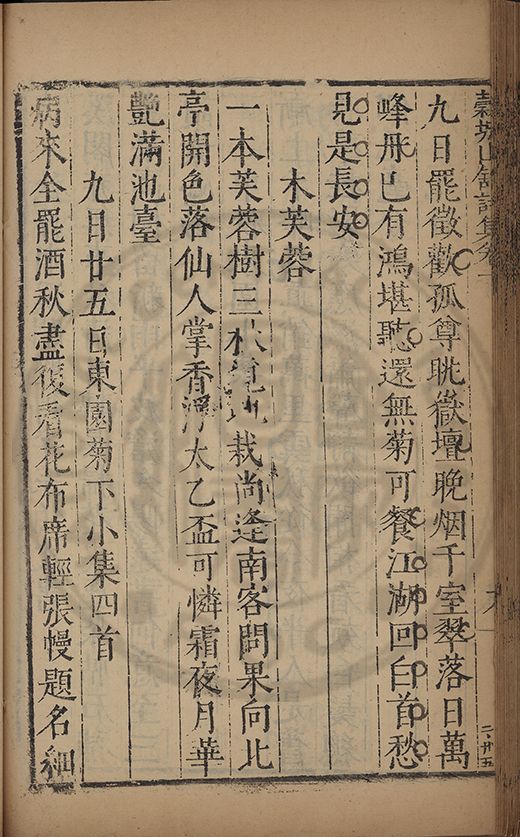 穀城山館詩集卷
九日罷徵歡孤尊眺嶽壇晚烟千室翠落日萬
峰丹已有鴻堪聽還無菊可餐江湖回白首愁
見是長安
木芙蓉
一本芙蓉樹三秋覓地栽尚逢南客問果向北
亭開色落仙人掌香浮太乙盃可憐霜夜月華
艷滿池臺
九日廿五日東園菊下小集四首
病來全罷酒秋盡復看花布席輕張幔題名細